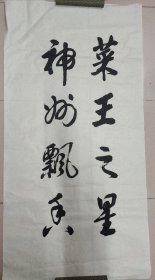 菜王之星
神州飘香